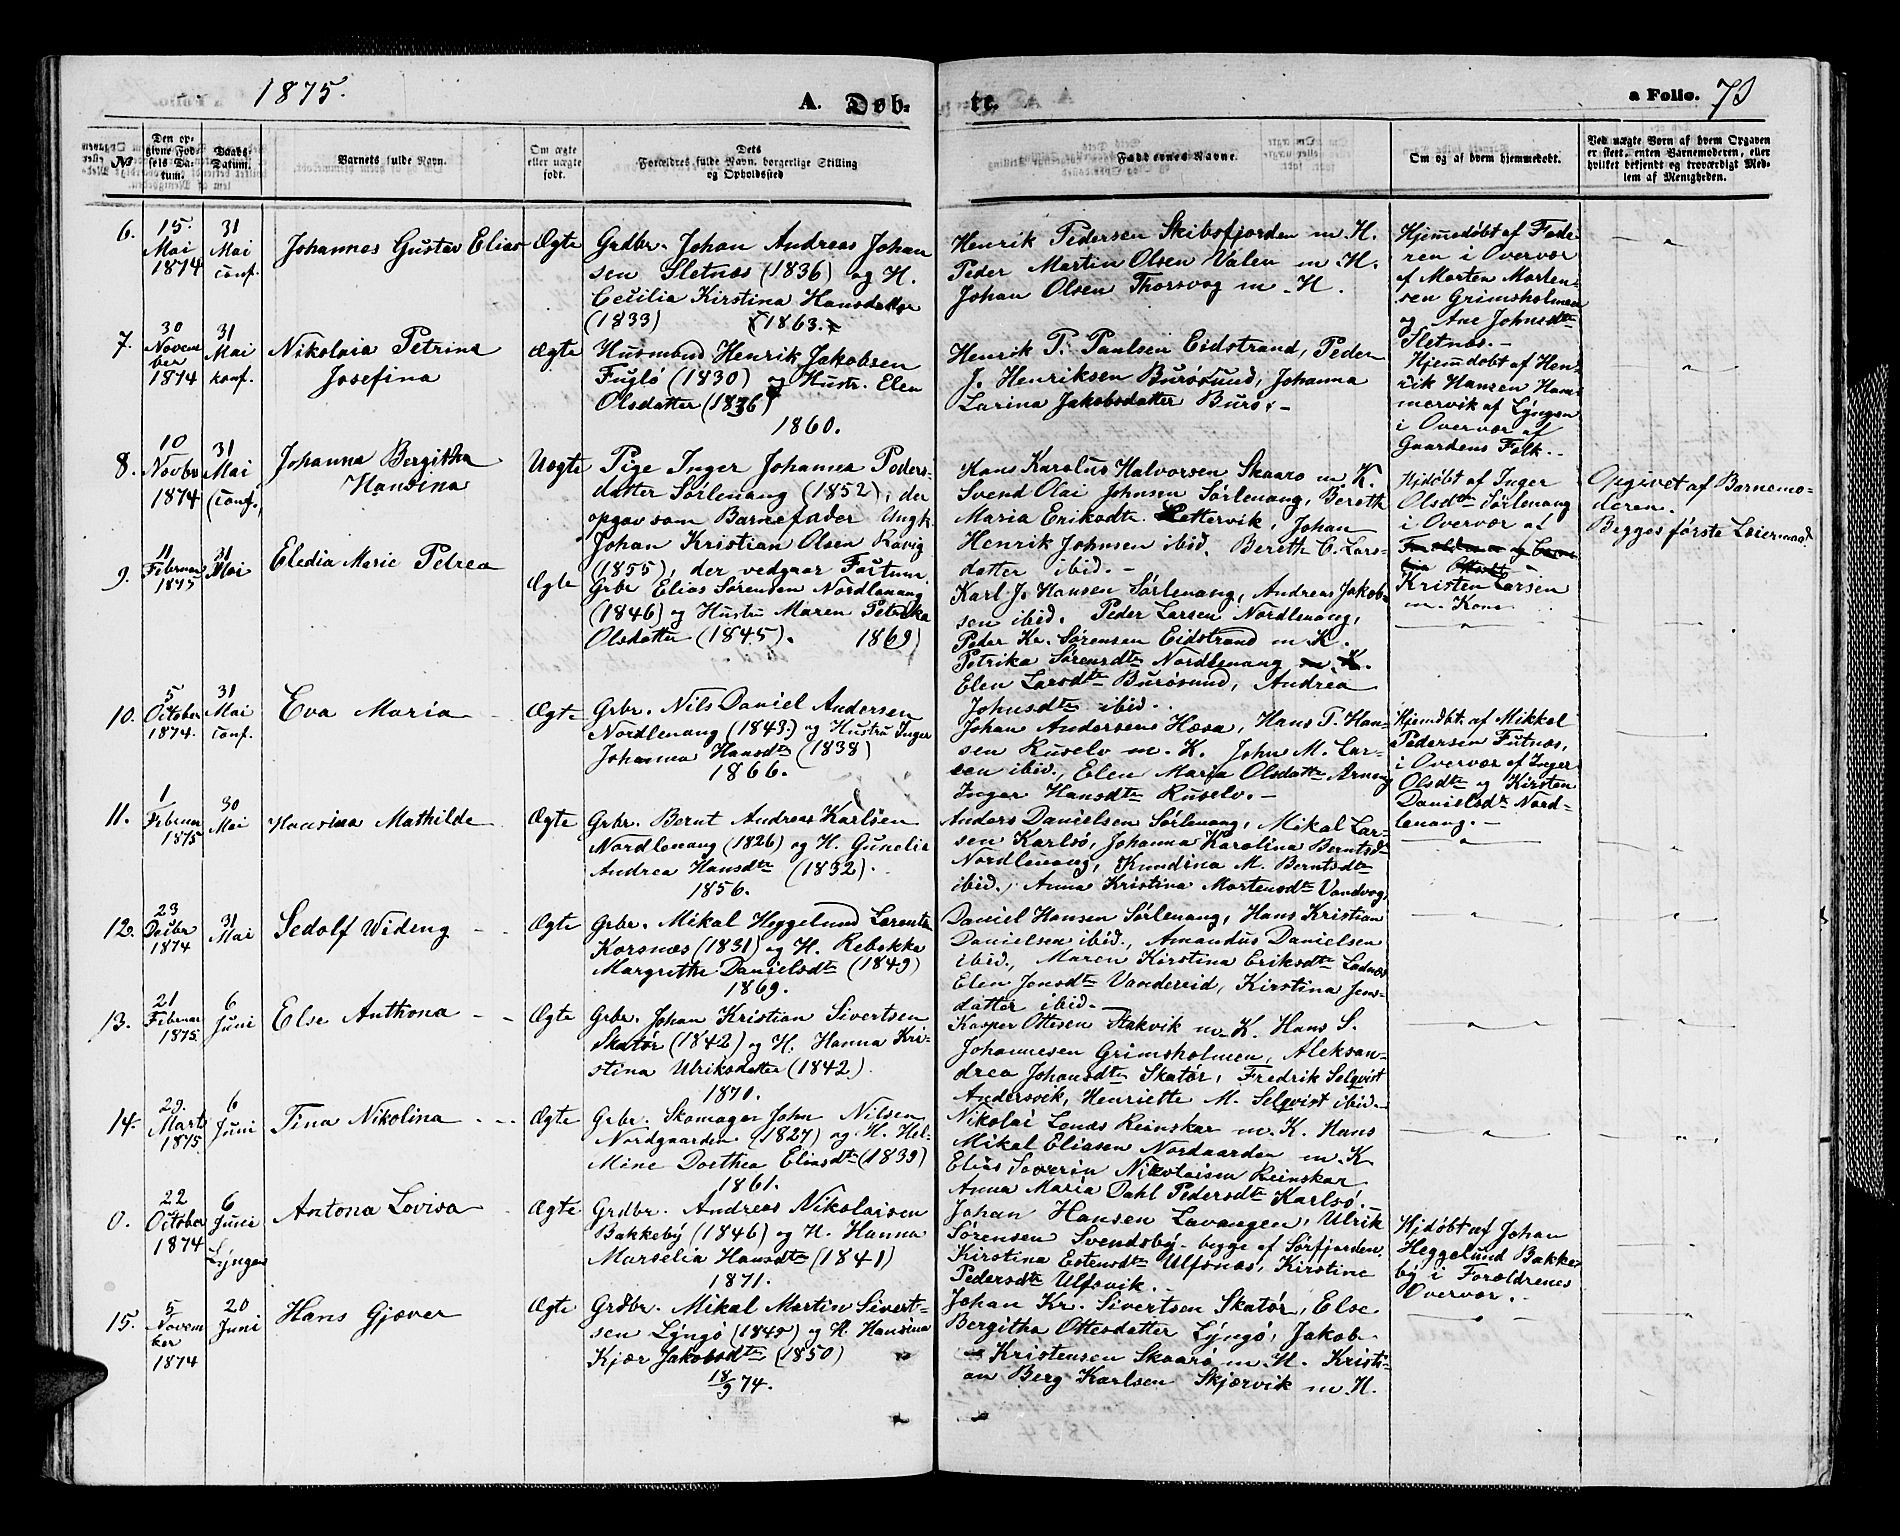 1875.
A. Døb-
te.
a Folio. 73
No
Den op-
givne Fød-
sels Da-
tum.
Daabs-
Datum.
Barnets fulde Navn.
Om ægte
eller uægte
født.
Dets
Forældres fulde Navn, borgerlige Stilling
og Opholdssted
Faddernes Navne.
Om og af hvem hjemmedøbt.
Ved uægte Børn af hvem Opgaven
er skeet, enten Barnemoderen, eller
hvilket bekjendt og troværdigt Med-
lem af Menigheden.
6.
15.
Mai
1874
31
Mai
conf.
Johannes Gustav Elias
Ægte
Grdbr. Johan Andreas Johan
sen Sletnæs (1836) og H.
Cecilia Kirstina Hansdatter
(1833) 1863.
Henrik Pedersen Skibsfjorden m. H.
Peder Martin Olsen Valen m. H.
Johan Olsen Thorsvog m. H.
Hjemmedøbt af Fade-
ren i Overvær
af Morten Morten-
sen Grimsholmen
og Ane Johnsdtr
Sletnæs.
7.
30
Novem
ber
1874
31
Mai
konf.
Nikolaia Petrina
Josefina
Ægte
Husmand Henrik Jakobsen
Fuglø (1830) og Hustr. Elen
Olsdatter (1836)
1860.
Henrik P. Paulsen Eidstrand, Peder
J. Henriksen Burøsund, Johanna
Larina Jakobsdatter Burø.
Hjemdøbt af Hen-
rik Hansen Ham-
mervik af Lyngen
i Overvær af
Gaardens Folk.
8.
10
Novbr
1874
31
Mai
(conf.)
Johanna Bergitha
Hansina
Uægte
Pige Inger Johanna Peders-
datter Sørlenang (1852), der
opgav som Barnefader Ungk.
Johan Kristian Olsen Ravig
(1855), der vedgaar Factum.
Hans Karolus Halvorsen Skaarø m. K.
Svend Olai Johnsen Sørlenang, Bereth
Maria Eriksdtr Lettervik, Johan
Henrik Johnsen ibid. Bereth C. Lars-
datter ibid.
Hjdøbt af Inger
Olsdtr Sørlenang
i Overvær af
Kristen Larsen
m. Kone
Opgivet af Barnemo-
deren.
Begges første Leiermaal.
9.
11
Februar
1875
31
Mai
Eledia Marie Petrea
Ægte
Grbr Elias Sørensen Nordlenang
(1846) og Hustru Maren Petrikka
Olsdatter (1845). 1869
Karl J. Hansen Sørlenang, Andreas Jakob-
sen ibid. Peder Larsen Nordlenang,
Peder Kr. Sørensen Eidstrand m K.
Petrika Sørensdtr Nordlenang
Elen Larsdtr Burøsund, Andrea
Johnsdtr ibid.
10.
5
October
1874.
31
Mai
conf.
Eva Maria
Ægte
Grbr. Nils Daniel Andersen
Nordlenang (1843) og Hustru Inger
Johanna Hansdtr (1838)
1866.
Johan Andersens Hæsa, Hans P. Han-
sen Ruselv m. K. John M. Lar-
sen ibid., Elen Maria Olsdatter Arneng
Inger Hansdtr Ruselv.
Hjemdbt. af Mikkel
Pedersen Futnæs,
i Overvær af Inger
Olsdtr og Kirsten
Danielsdtr Nord-
lenang.
11.
1
Februar
1875
30
Mai
Hansina Mathilde
Ægte
Grbr. Bernt Andreas Karlsen
Nordlenang (1826) og H. Gunelia
Andrea Hansdtr (1832).
1856.
Anders Danielsen Sørlenang, Mikal Lar-
sen Karlsø, Johanna Karolina Berntsdtr
Nordlenang, Kundina M. Berntsdtr
ibid., Anna Kristina Mortensdtr Vandvog
12.
23
Decbr
1874
31
Mai
Sedolf Wideng
Ægte
Grbr. Mikal Heggelund Lorents
Korsnæs (1831) og H. Rebekka
Margrethe Danielsdtr (1849)
1869.
Daniel Hansen Sørlenang, Hans Kristian
Danielsen ibid., Amandus Danielsen
ibid., Maren Kirstina Eriksdtr Ladnæs
Elen Jonsdtr Vandereid, Kirstina Jens-
datter ibid.
13.
21
Februar
1875.
6
Juni
Else Anthona
Ægte
Grbr. Johan Kristian Sivertsen
Skatør (1842) og H. Hanna Kri-
stina Ulriksdatter (1842)
1870.
Kasper Ottesen Stakvik m. K. Hans S.
Johannesen Grimsholmen, Aleksan-
drea Johansdtr Skatør, Fredrik Selqvist
Andersvik, Henriette M. Selqvist ibid.
14.
29.
Mart
1875
6
Juni
Tina Nikolina
Ægte
Grbr. Skomager John Nilsen
Nordgaarden (1827) og H. Hel-
Mine Dorthea Eliasdtr (1839)
1861.
Nikolai Londs Reinskar m. K. Hans
Mikal Eliasen Nordaarden m. K
Elias Severin Nikolaisen Reinskar
Anna Maria Dahl Pedersdtr Karlsø.
0.
22
October
1874
6
Juni
Lyngen
Antona Lovisa
Ægte
Grdbr. Andreas Nikolaisen
Bakkeby (1846) og H. Hanna
Marselia Hansdtr (1841)
1871.
Johan Hansen Lavangen, Ulrik
Sørensen Svendsby begge af Sørfjorden.
Kirstina Estensdtr Ulfsnæs, Kirstine
Pedersdtr Ulfsvik.
Hjdøbt af Johan
Heggelund Bakke-
by i Forældrenes
Overvær.
15.
5
Novem
ber
1874
20
Juni
Hans Gjæver
Ægte
Grdbr. Mikal Martin Sivert-
sen Lyngø (1845) og H. Hansina
Kjær Jakobsdtr (1850)
18/9 74.
Johan Kr. Sivertsen Skatør, Else
Bergitha Ottesdatter Lyngø, Jakob
Kristensen Skaarø m. H. Kristi-
an Berg Karlsen Skjærvik m. H.